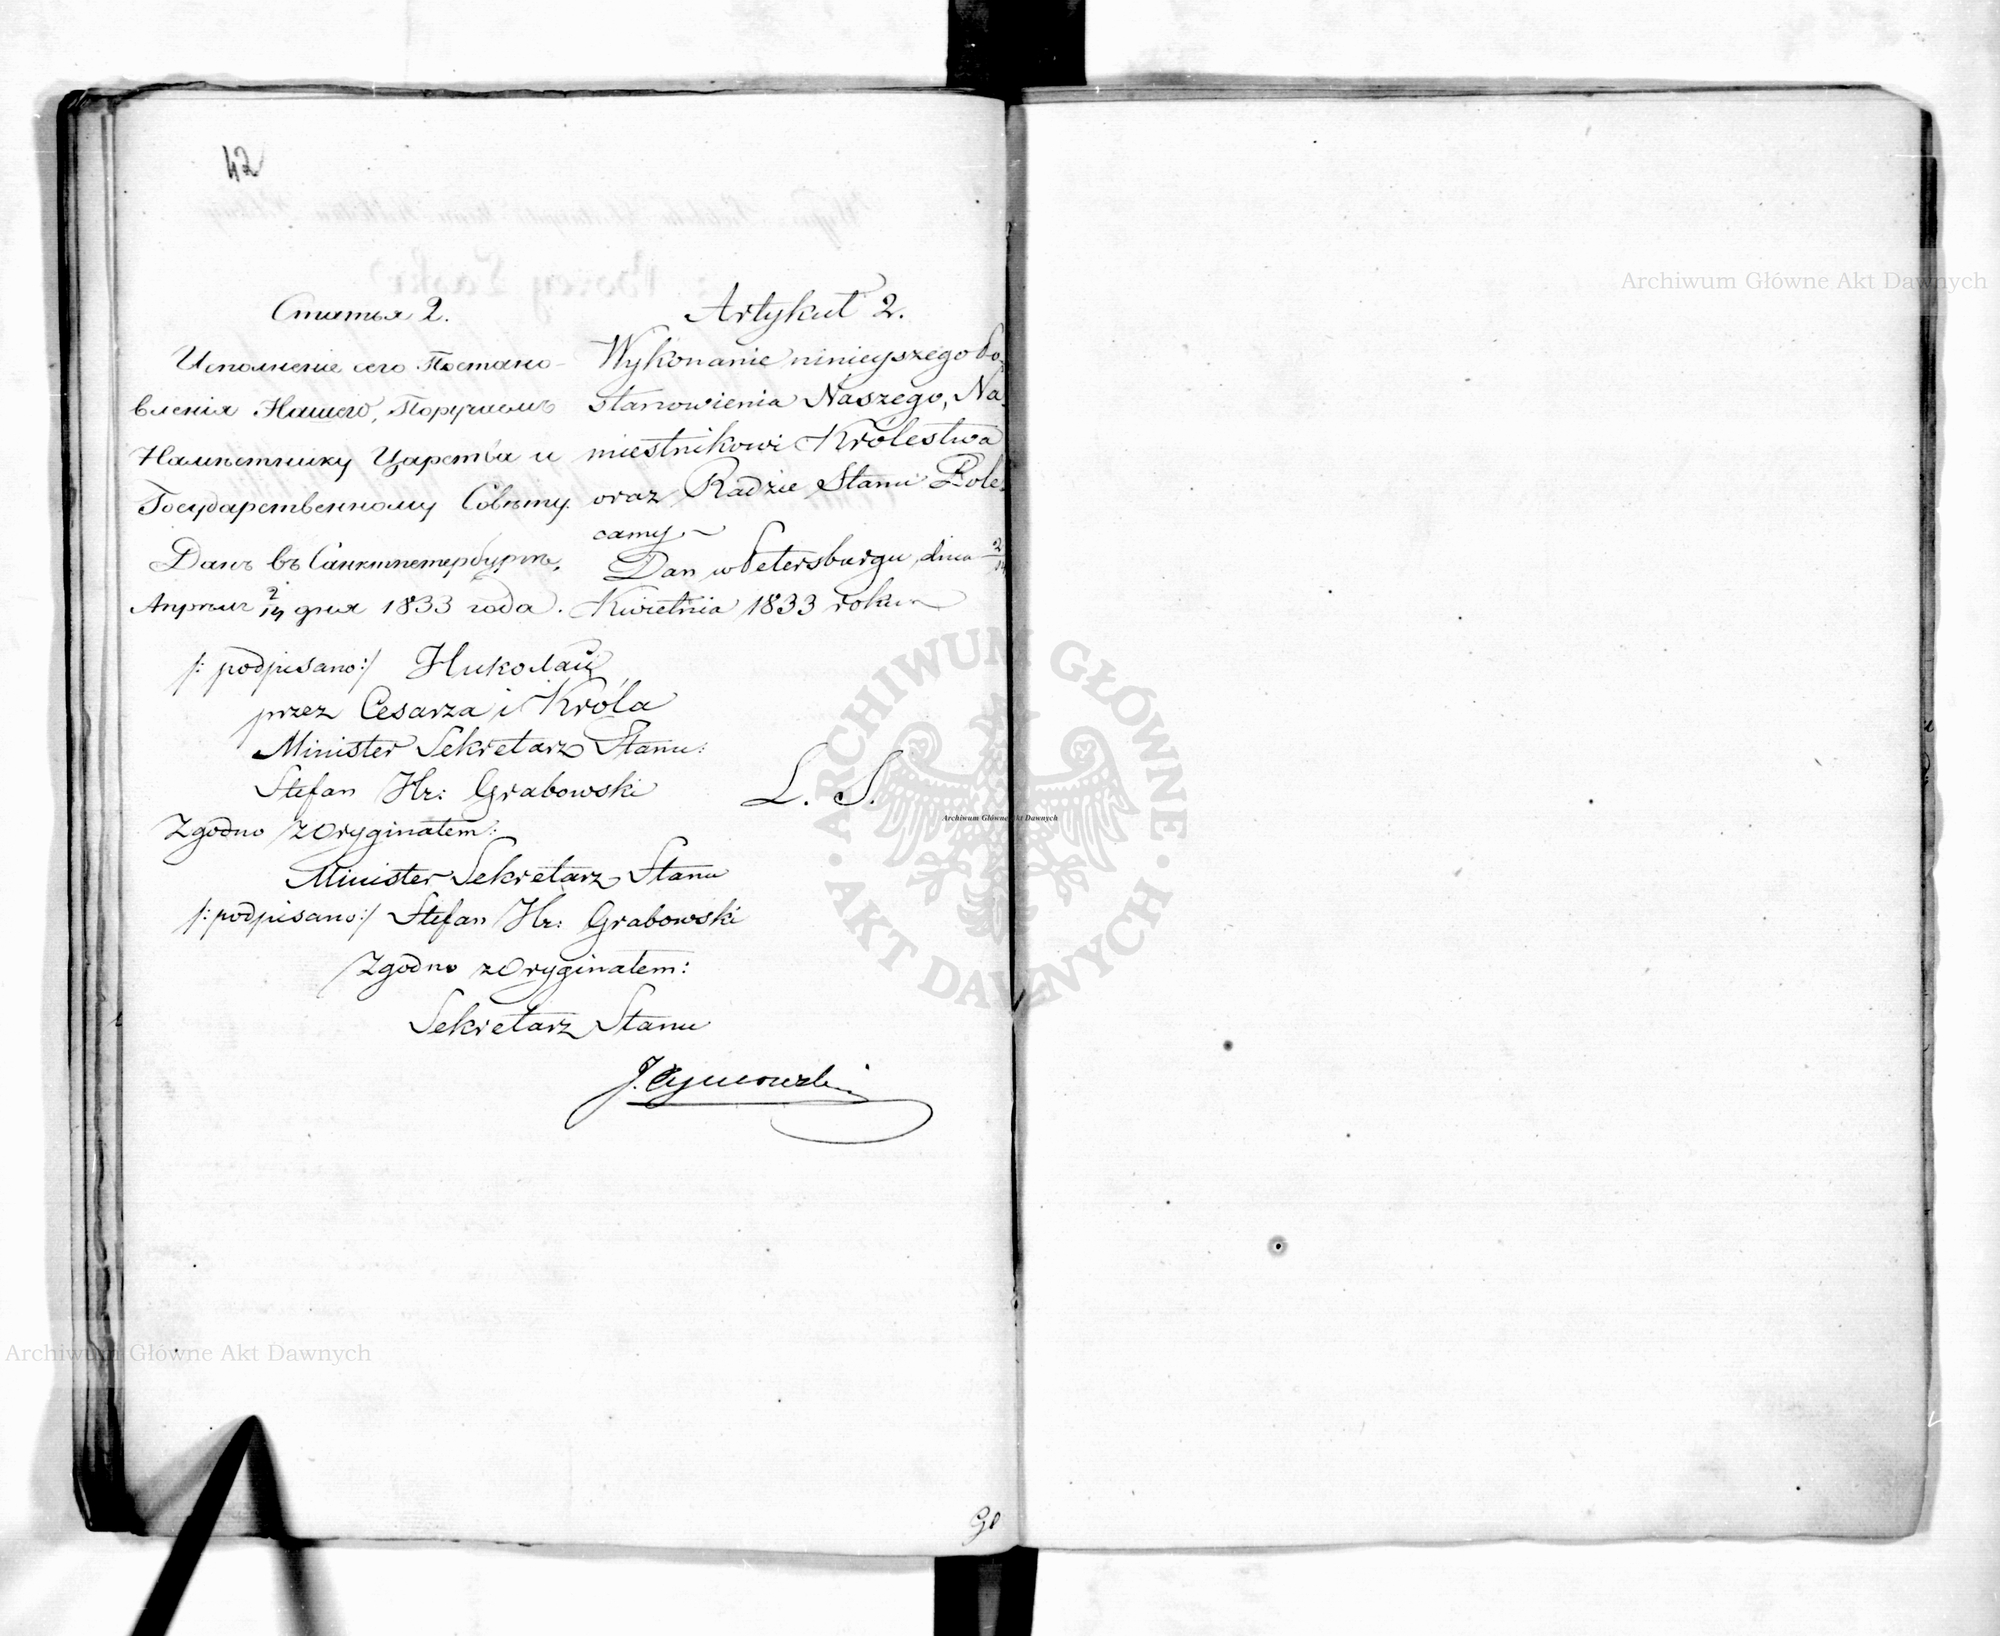 42
Статья 2.
Исполненіе сего Постано-
вленія Нашего, Поручаемъ
Намѣстнику Царства и
Государственному Совѣту.
Данъ въ Санктпетербургѣ,
Апрѣля 2/14 дня 1833 года.
Artykuł 2.
Wykonanie ninieyszego Po-
stanowienia Naszego, Na-
miestnikowi Królestwa
oraz Radzie Stanu Pole-
camy.
Dan w Petersburgu, dnia 2/14
Kwietnia 1833 roku
/: podpisano:/ Николай
przez Cesarza i Króla
Minister Sekretarz Stanu:
Stefan Hr: Grabowski
L. S.
Zgodno z Oryginałem:
Minister Sekretarz Stanu
/: podpisano:/ Stefan Hr: Grabowski
Zgodno z Oryginałem:
Sekretarz Stanu
Archiwum Główne Akt Dawnych
ARCHIWUM GŁÓWNE
AKT DAWNYCH
Archiwum Główne Akt Dawnych
Archiwum Główne Akt Dawnych